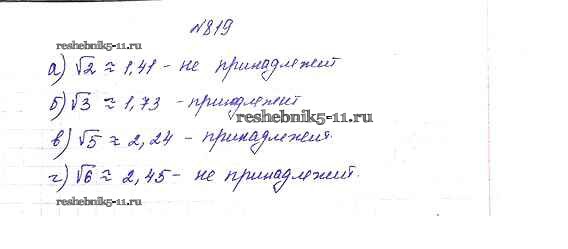 №819
reshebnik5-11.ru
а) √2 ≈ 1,41 - не принадлежит
б) √3 ≈ 1,73 - принадлежит
reshebnik5-11.ru
в) √5 ≈ 2,24 - принадлежит.
г) √6 ≈ 2,45 - не принадлежит.
reshebnik5-11.ru